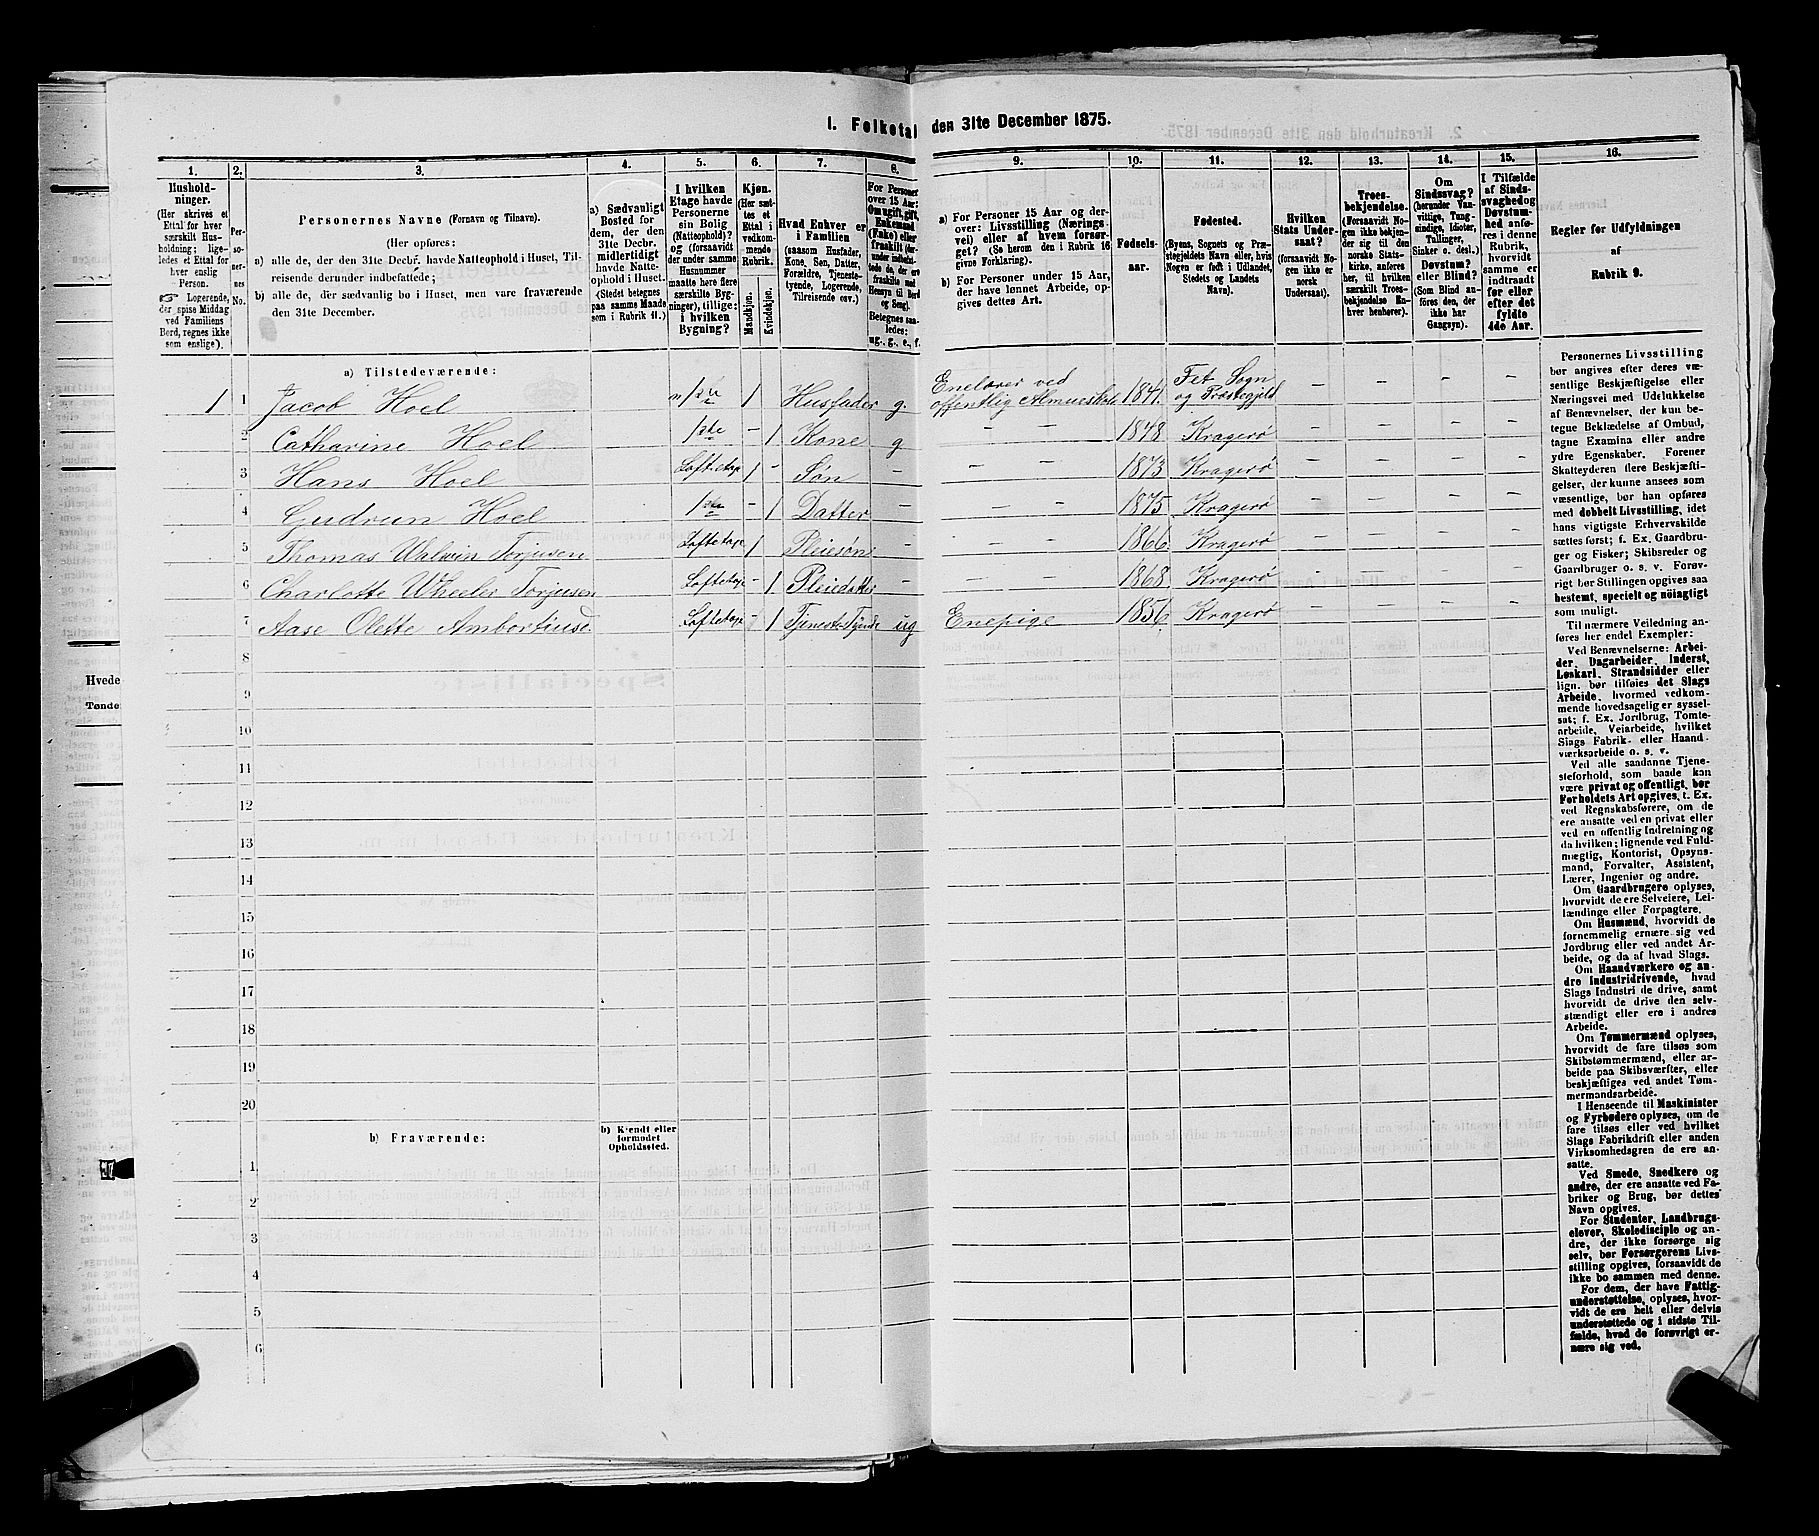 1. Folketal den 31te December 1875.
1.
2.
3.
4.
5.
6.
7.
8.
9.
10.
11.
12.
13.
14.
15.
16.
Hushold-
ninger.
(Her skrives et
Ettal for hver
særskilt Hus-
holdning; lige-
ledes et Ettal for
hver enslig
Person.
☞ Logerende,
der spise Middag
ved Familiens
Bord, regnes ikke
som enslige).
Per-
so-
ner-
nes
No.
Personernes Navne (Fornavn og Tilnavn).
(Her opføres:
a) alle de, der den 31te Decbr. havde Natteophold i Huset, Til-
reisende derunder indbefattede;
b) alle de, der sædvanlig bo i Huset, men vare fraværende
den 31te December.
a) Sædvanligt
Bosted for
dem, der den
31te Decbr.
midlertidigt
havde Natte-
ophold i Huset.
(Stedet betegnes
paa samme Maade
som i Rubrik 11.)
I hvilken
Etage havde
Personerne
sin Bolig
(Natteophold)?
og (forsaavidt
der under samme
Husnummer
maatte høre flere
særskilte Byg-
ninger), tillige:
i hvilken
Bygning?
Kjøn.
(Her sæt-
tes et
Ettal i
vedkom-
mende
Rubrik.
Mandkjøn.
Kvindekjøn.
Hvad Enhver er
i Familien
(saasom Husfader,
Kone, Søn, Datter,
Forældre, Tjeneste-
tyende, Logerende,
Tilreisende osv.)
For Personer
over 15 Aar:
Om ugift, gift,
Enkemand
(Enke) eller
fraskilt
Betegnes saa-
ledes:
ug., g., e., f.
a) For Personer 15 Aar og der-
over: Livsstilling (Nærings-
vei) eller af hvem forsør-
get? (Se herom den i Rubrik 16
givne Forklaring).
b) For Personer under 15 Aar,
der have lønnet Arbeide, op-
gives dettes Art.
Fødsels-
aar.
Fødested.
(Byens, Sognets og Præ-
stegjeldets Navn eller, hvis
Nogen er født i Udlandet,
Stedets og Landets
Navn).
Hvilken
Stats Under-
saat?
(forsaavidt No-
gen ikke er
norsk
Undersaat).
Troes-
bekjendelse.
(Forsaavidt No-
gen ikke bekjen-
der sig til den
norske Stats-
kirke, anføres
her, til hvilken
særskilt Troes-
bekjendelse En-
hver henhører).
Om
Sindssvag?
(herunder Van-
vittige, Tung-
sindige, Idioter,
Tullinger,
Sinker o. desl.)
Døvstum?
eller Blind?
(Som Blind an-
føres den, der
ikke har
Gangsyn).
I Tilfælde
af Sinds-
svaghed og
Døvstum-
hed anfø-
res i denne
Rubrik,
hvorvidt
samme er
indtraadt
før eller
efter det
fyldte
4de Aar.
Regler før Udfyldningen
af
Rubrik 9.
a) Tilstedeværende:
1 1 Jacob Hoel 1 Husfader g. Enelærer ved offentlig Almueskole 1841. Fet Sogn og Præstegjeld – – – –
2 Catharine Hoel 1ste – 1 Kone g – – 1848 Kragerø – – – –
3 Hans Hoel Loftetage 1 – Søn – – – 1873 Kragerø – – – –
4 Gudrun Hoel – 1 Datter – – – 1875 Kragerø – – – –
5 Thomas Torjusen Loftetage 1 Pleiesøn – – – 1866. Kragerø – – – –
6 Charlotte Wheeler Torjusen Loftetage – 1 Pleiedatter – – – 1868. Kragerø – – – –
7 Aase Olette Loftetage 1 ug Enepige 1856. Kragerø – – – –
8
9
10
11
12
13
14
15
16
17
18
19
20
b) Fraværende:
b) Kjendt eller
formodet
Opholdssted.
1
2
3
4
5
6
Personernes Livsstilling
bør angives efter deres væ-
sentlige Beskjæftigelse eller
Næringsvei med Udelukkelse
af Benævnelser, der kun be-
tegne Beklædelse af Ombud,
tagne Examina eller andre
ydre Egenskaber. Forener
Skatteyderen flere Beskjæfti-
gelser, der kunne ansees som
væsentlige, bør han opføres
med dobbelt Livsstilling, idet
hans vigtigste Erhvervskilde
sættes først; f. Ex. Gaardbru-
ger og Fisker; Skibsreder og
Gaardbruger o. s. v. Forøv-
rigt bør Stillingen opgives saa
bestemt, specielt og nöiagtigt
som muligt.
Til nærmere Veiledning an-
føres her endel Exempler:
Ved Benævnelserne: Arbei-
der, Dagarbeider, Inderst,
Løskarl, Strandsidder eller
lign. bør tilføies det Slags
Arbeide, hvormed vedkom-
mende hovedsagelig er syssel-
sat; f. Ex. Jordbrug, Tomte-
arbeide, Veiarbeide, hvilket
Slags Fabrik- eller Haand-
værksarbeide o. s. v.
Ved alle saadanne Tjene-
steforhold, som baade kan
være privat og offentligt, bør
Forholdets Art opgives, t. Ex.
ved Regnskabsførere, om de
ere ansatte ved en privat eller
ved en offentlig Indretning og
da hvilken; lignende ved Fuld-
mægtig, Kontorist, Opsyns-
mand, Forvalter, Assistent,
Lærer, Ingeniør og andre.
Om Gaardbrugere oplyses,
hvorvidt de ere Selveiere, Lei-
lændinge eller Forpagtere.
Om Husmænd, hvorvidt de
fornemmelig ernære sig ved
Jordbrug eller ved andet Ar-
beide, og da af hvad Slags.
Om Haandværkere og an-
dre Industridrivende, hvad
Slags Industri de drive, samt
hvorvidt de drive den selv-
stændigt eller ere i andres
Arbeide.
Om Tømmermænd oplyses,
hvorvidt de fare tilsøs som
Skibstømmermænd, eller ar-
beide paa Skibsværfter, eller
beskjæftiges ved andet Tøm-
mermandsarbeide.
I Henseende til Maskinister
og Fyrbødere oplyses, om de
fare tilsøs eller ved hvilket
Slags Fabrikdrift eller anden
Virksomhedsgren de ere an-
satte.
Ved Smede, Snedkere og
andre, der ere ansatte ved Fa-
briker og Brug, bør dettes
Navn opgives.
For Studenter, Landbrugs-
elever, Skoledisciple og an-
dre, der ikke forsørge sig
selv, bør Forsørgerens Livs-
stilling opgives, forsaavidt de
ikke bo sammen med denne.
For dem, der have Fattig-
understøttelse, oplyses, hvor-
vidt de ere helt eller delvis
understøttede og i sidste Til-
fælde, hvad de forøvrigt er-
nære sig ved.
Hvede
Tønder